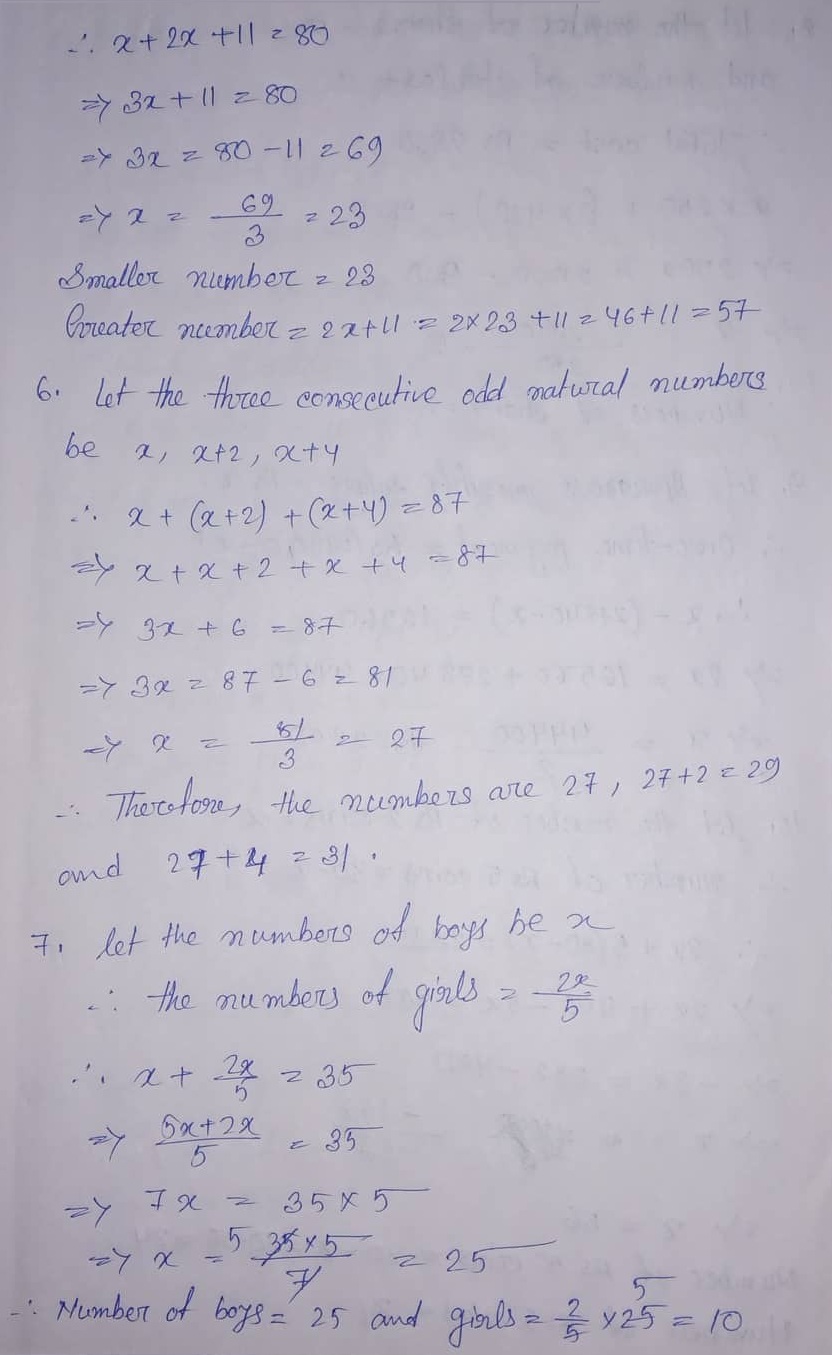 ∴ x + 2x + 11 = 80
=> 3x + 11 = 80
=> 3x = 80 - 11 = 69
=> x = 69/3 = 23
Smaller number = 23
Greater number = 2x+11 = 2×23 + 11 = 46+11 = 57
6. Let the three consecutive odd natural numbers
be x, x+2, x+4
∴ x + (x+2) + (x+4) = 87
=> x + x + 2 + x + 4 = 87
=> 3x + 6 = 87
=> 3x = 87 - 6 = 81
=> x = 81/3 = 27
∴ Therefore, the numbers are 27, 27+2 = 29
and 27+4 = 31.
7. let the numbers of boys be x
∴ the numbers of girls = 2x/5
∴ x + 2x/5 = 35
=> 5x+2x/5 = 35
=> 7x = 35 × 5
=> x = 5 35×5/7 = 25
∴ Number of boys = 25 and girls = 2/5 × 25 5 = 10